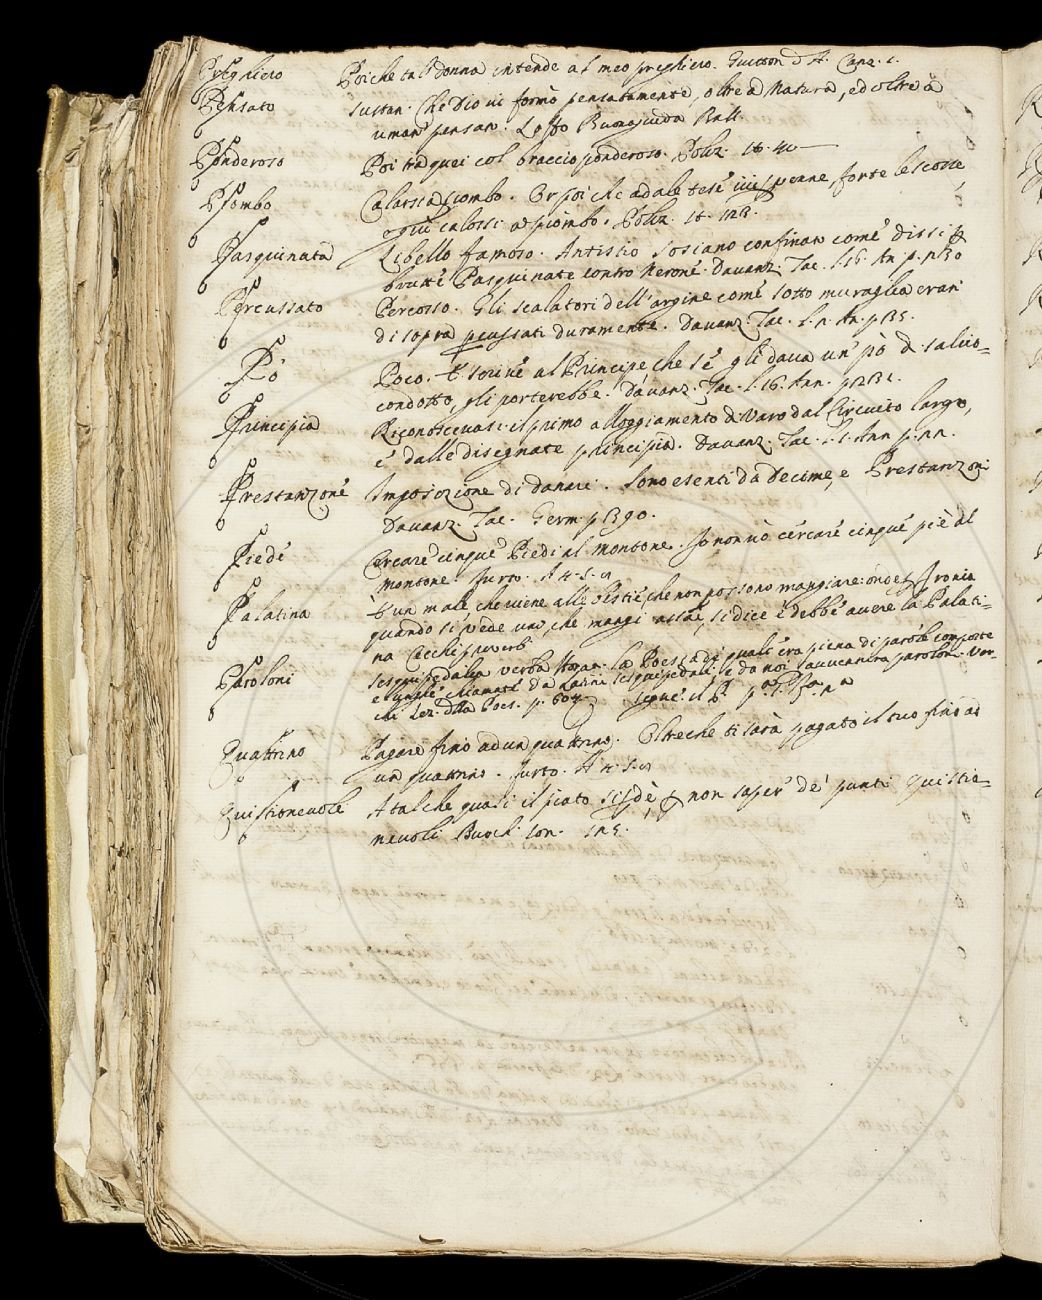 Preghiero Poiche tal donna intende al meo preghiero. Guitton d'A. Canz. 1.
Pensato sustan. Che Dio vi formò pensatamente, oltre a Natura, ed oltre a
uman pensato. Loffo Buonaguida Ball.
Ponderoso Poi tra quei col braccio ponderoso. Poliz.
Piombo Calarsi a piombo. Or poi che ad ale tese ivi pervenne, forte le scosse,
e giù calossi a piombo. Poliz.
Pasquinata Libello famoso. Antistio Sosiano confinato come dissi p
brutte Pasquinate contro Nerone. Davanz. Tac. l. 16. An. p.
Percussato Percosso. Gli scalatori dell'argine come sotto muraglia eran
di sopra pcussati duramente. Davanz. Tac. l. An. p
Pò Poco. E scrive al Principe che se gli dava un pò di salvo=
condotto gli porterebbe. Davanz. Tac. l. 16. Ann. p
Principia Riconoscevasi il primo alloggiamento di Varo dal Circuito largo,
e dalle disegnate principia. Davanz. Tac. l. 1. Ann p.
Prestanzone Imposizione di danari. Sono esenti da Decime, e Prestanzoni
Davanz. Tac. Germ p 390.
Piede Cercare cinque Piedi al montone. Io non vò cercare cinque piè al
montone. Furto. A 4. S.
Palatina È un male che viene alle bestie, che non possono mangiare: onde p Ironia
quando si vede uno, che mangi assai, si dice e' debbe avere la Palati=
na Cecchi proverb
Paroloni sesquipedalia verba Horan. la Poesia di quale era piena di parole composte
e lunghe chiamate da Latini sesquipedali, e da noi sauvennira paroloni. Var=
chi Lez. dlla Poes. p. 604 segue il
Quattrino Pagare fino ad un quattrino. Oltreche ti sarà pagato il tuo fino ad
un quattrino. Furto. A 4. S.
Quistionevole A tal che quasi il piato si pdè, p non saper de' punti quistio=
nevoli Burch. son.